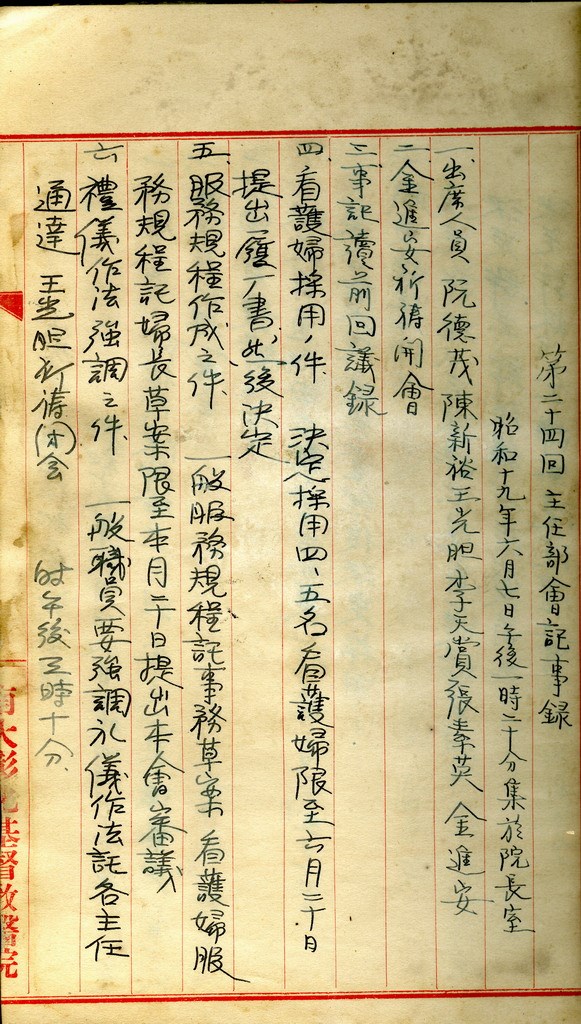 第二十四回主任部會記事録
昭和十九年六月七日午後一時二十分集於院長室
一、出席人員 阮德茂 陳新裕 王光胆 李天賞 張奉英 金進安
二 金進安祈禱開會
三、事記讀前回議録
四、看護婦採用ノ件 決定採用四、五名看護婦限至六月二十日
提出履歷書然後決定
五、服務規程作成之件 一般服務規程託事務草案 看護婦服
務規程託婦長草案限至本月二十日提出本會審議
六 禮儀作法強調之件 一般職員要強調礼儀作法託各主任
通達 王光胆祈禱闭会 时午後三時十分
基督教醫院